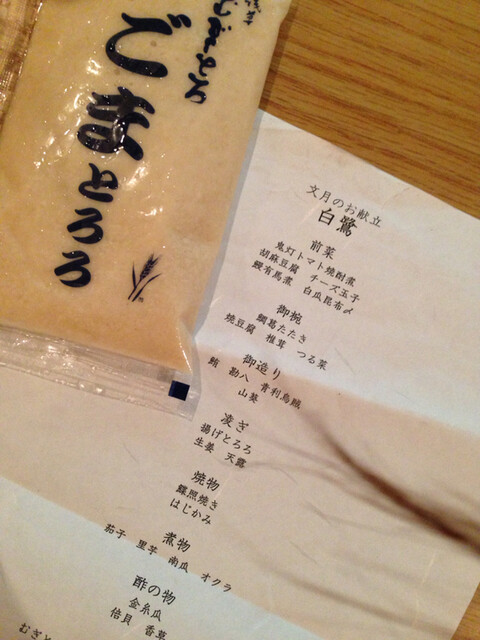 ごまとろろ
文月のお献立
白鷺
前菜
鬼灯トマト焼酎煮
胡麻豆腐 チーズ玉子
鰻有馬煮 白瓜昆布〆
御椀
鯛葛たたき
焼豆腐 椎茸 つる菜
御造り
鮪 勘八 青利烏賊
山葵
凌ぎ
揚げとろろ
生姜 天露
焼物
鰈照焼き
はじかみ
煮物
茄子 里芋 南瓜 オクラ
酢の物
金糸瓜
倍貝 香草
むぎと